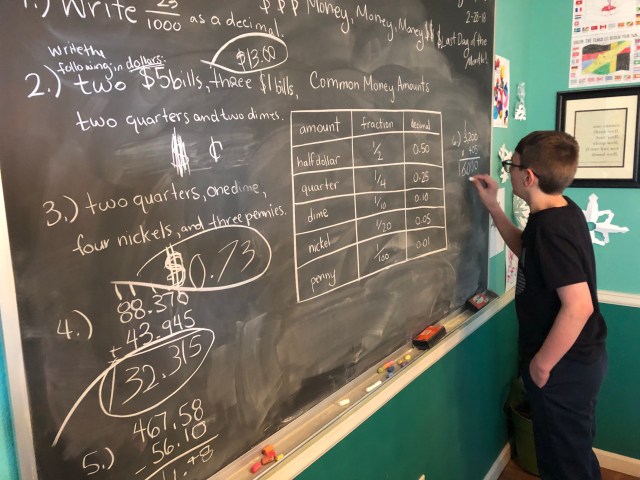 1.) Write 23/1000 as a decimal.
$ $ $ Money, Money, Money $$
2-28-18
$Last Day of the
Month!
write the
following in dollars.
2.) two $5 bills, three $1 bills,
two quarters and two dimes.
$ ¢
3.) two quarters, one dime,
four nickels, and three pennies.
$0.73
4.) 88.370
+ 43.945
132.315
5.) 467.58
- 56.10
Common Money Amounts
amount fraction decimal
half dollar 1/2 0.50
quarter 1/4 0.25
dime 1/10 0.10
nickel 1/20 0.05
penny 1/100 0.01
6.) 3200
16000